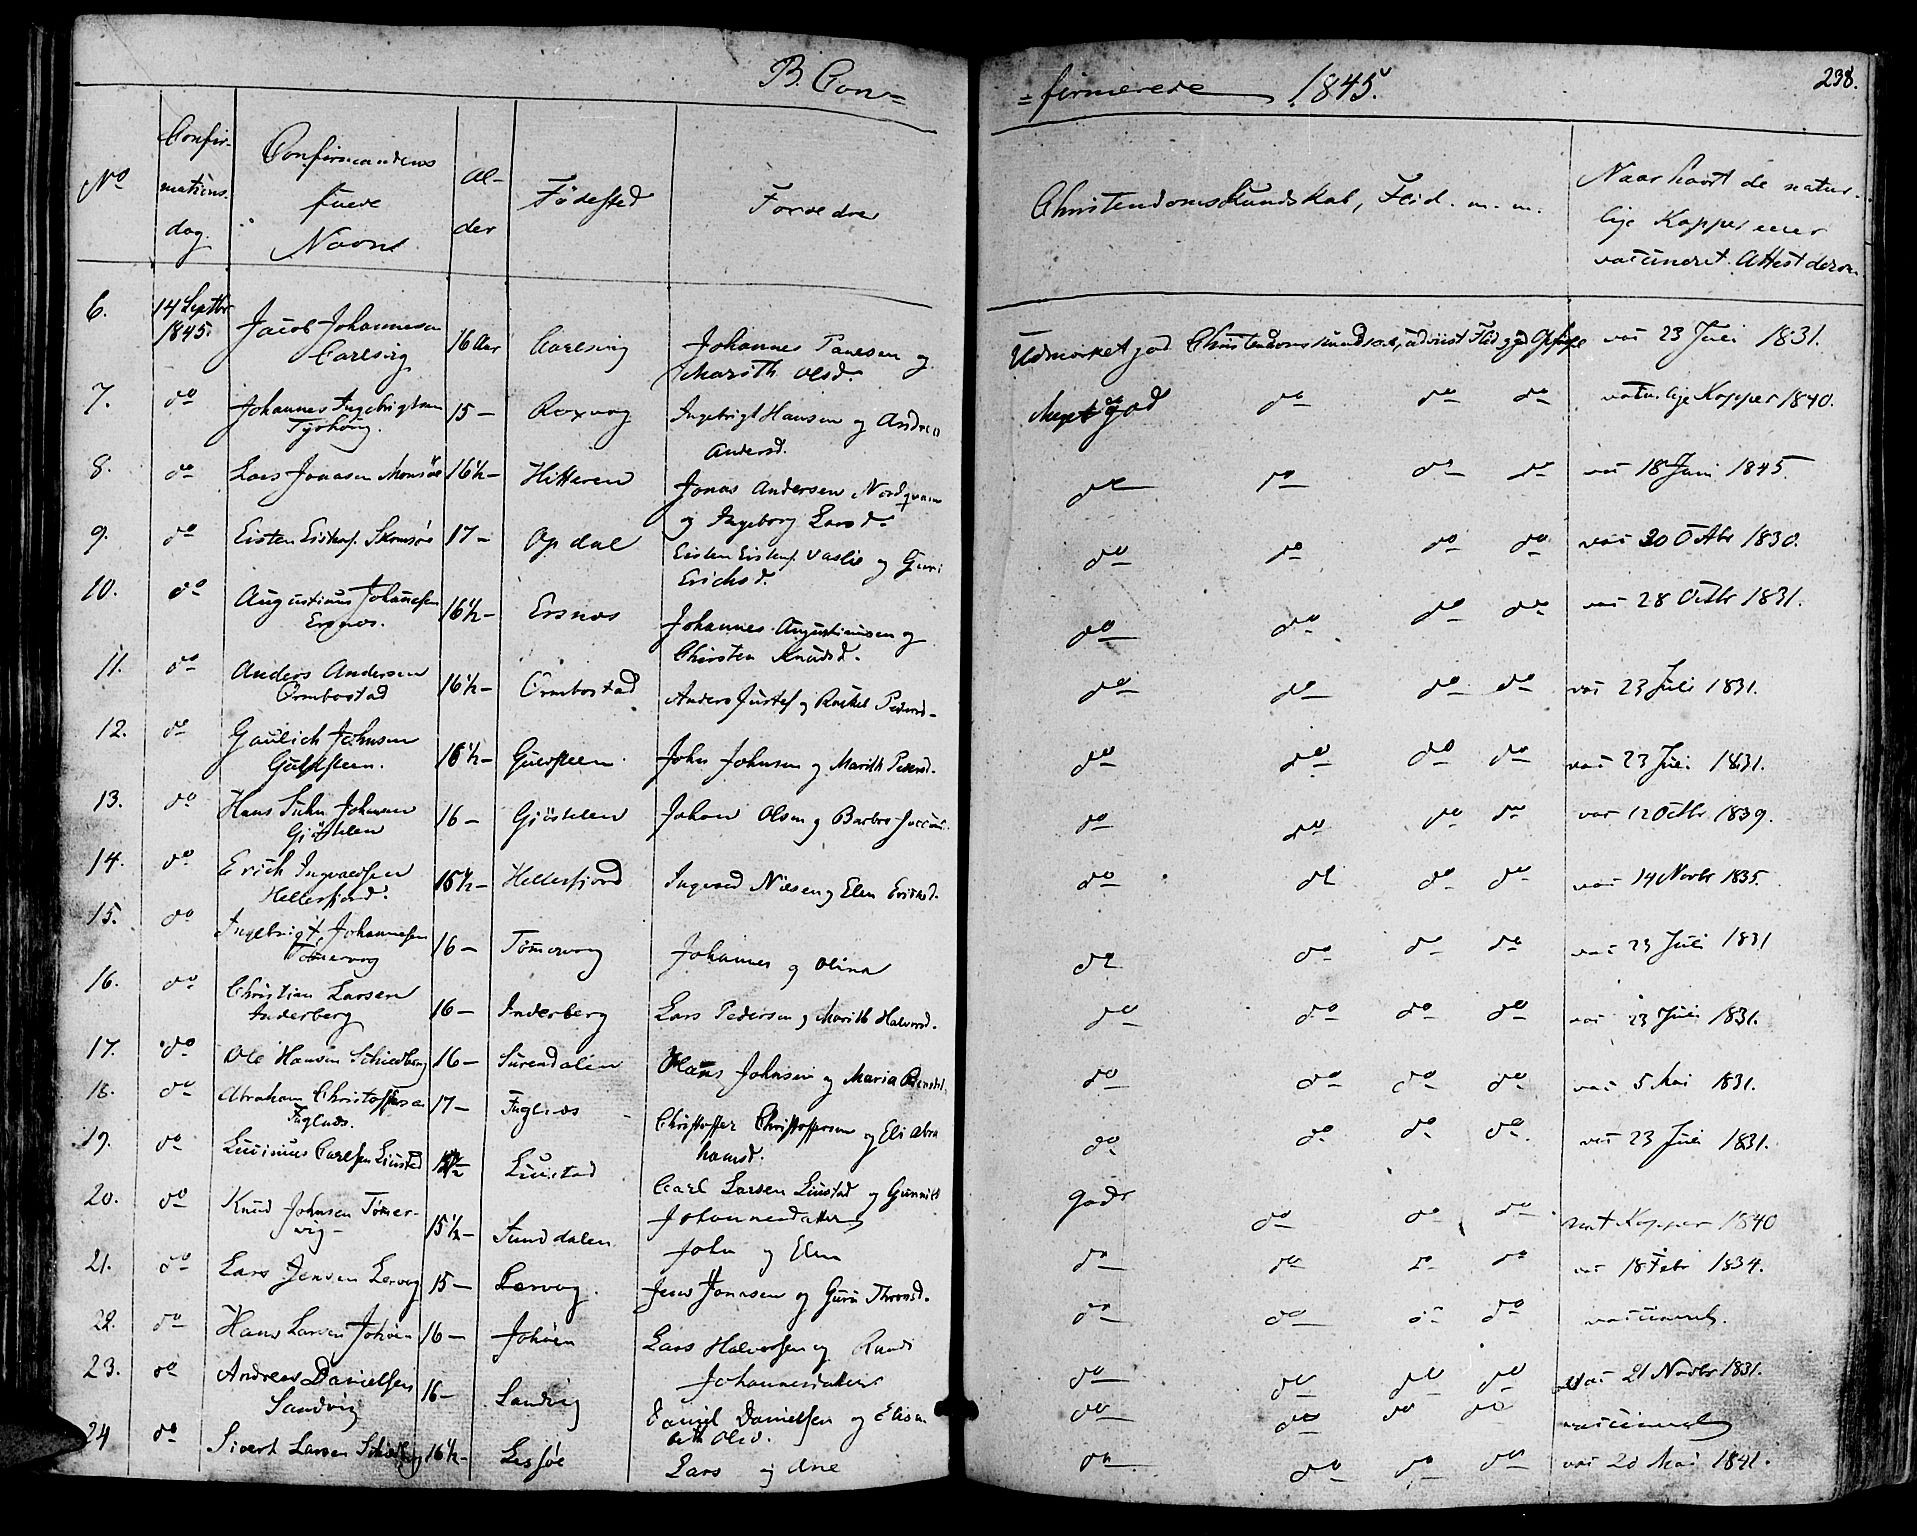 B. Con=
=firmerede 1845.
238.
No
Confir-
mations.
dag.
Confirmandens
fulde
Navn.
Al-
der
Födested
Forældre
Christendomskundskab, Flid. m. m.
Naar havt de natur-
lige Kopper eller
vaccineret. Attest derom
6. 14 Septbr 1845. Jacob Johannesen Carlsvig 16 Aar Carlsvig Johannes Paulsen og Marith Olsd. Udmærket god Christendomskundskab, udviist Flid og god Opførsel vac 23 Juli 1831.
7. do Johannes Ingebrigtsen 15 – Roxvog Ingebrigt Hansen og Andrea Andersd. Meget god do do do naturlige Kopper 1840.
8. do Lars Jonasen Monsöe 16½ – Hitteren Jonas Andersen Nordqvam og Ingeborg Larsd. do do do do vac 18 Juni 1845.
9. do Eisten Eistens. 17 – Opdal Eisten Eistens. Vaslie og Guri Erichsd. do do do do vac 30 Octbr 1830.
10. do Augustinus Johannesen Ersnæs. 16½ – Ersnæs Johannes Augustinusen og Chirsten Knudsd. do do do do vac 28 Octbr 1831.
11. do Anders Andersen Ormbostad 16½ – Ormbostad Anders Justes. og Rachel Pedersd. do do do do vac 23 Juli 1831.
12. do Gaulich Johnsen Guldsteen. 16½ – Guldsteen. John Johnsen og Marith Pedersd. do do do do vac 23 Juli 1831.
13. do Hans Suhm Johansen Gjöstelen 16 – Gjöstelen Johan Olsen og Barbro do do do do vac 12 Octbr 1839.
14. do Erich Ingvaldsen Hellesfjord. 15½ – Hellesfjord Ingvald Nilsen og Elen Erichsd. do do do do vac 14 Novbr 1835.
15. do Ingebrigt Johannesen Tömervog 16 – Tömervog Johannes og Olina do do do do vac 23 Juli 1831
16. do Christian Larsen Inderberg 16 – Inderberg Lars Pedersen og Marith Halvorsd. do do do do vac 23 Juli 1831.
17. do Ole Hansen Schiedberg 16 – Surendalen Hans Johnsen og Maria do do do do vac 5 Mai 1831.
18. do Abraham Christoffersen Fuglnæs. 17 – Fuglnæs Christoffer Christoffersen og Eli Abra hamsd. do do do do vac 23 Juli 1831.
19. do Lucinius Carlsen Liustad Liustad Carl Larsen Liustad og Gunnild Johannesdatter godt do do do nat Kopper 1840
20. do Knud Johnsen Tömer- vig – 15½ – Sunddalen John og Elen do do do do vac 18 Febr 1834.
21. do Lars Jensen Lervog 15 – Lervog. Jens Jonasen og Guru Thronsd. do do do do vaccineret.
22. do Hans Larsen Johöen 16 – Johöen Lars Halvorsen og Randi Johannesdatter do do do do vac 21 Novbr 1831.
23. do Andreas Danielsen Sandvig 16 – Sandvig Daniel Danielsen og Elisa beth Olsd. do do do do vaccineret
24 do Sivert Larsen 16½ – Lesjöe Lars og Ane do do do do vac 20 Mai 1841.